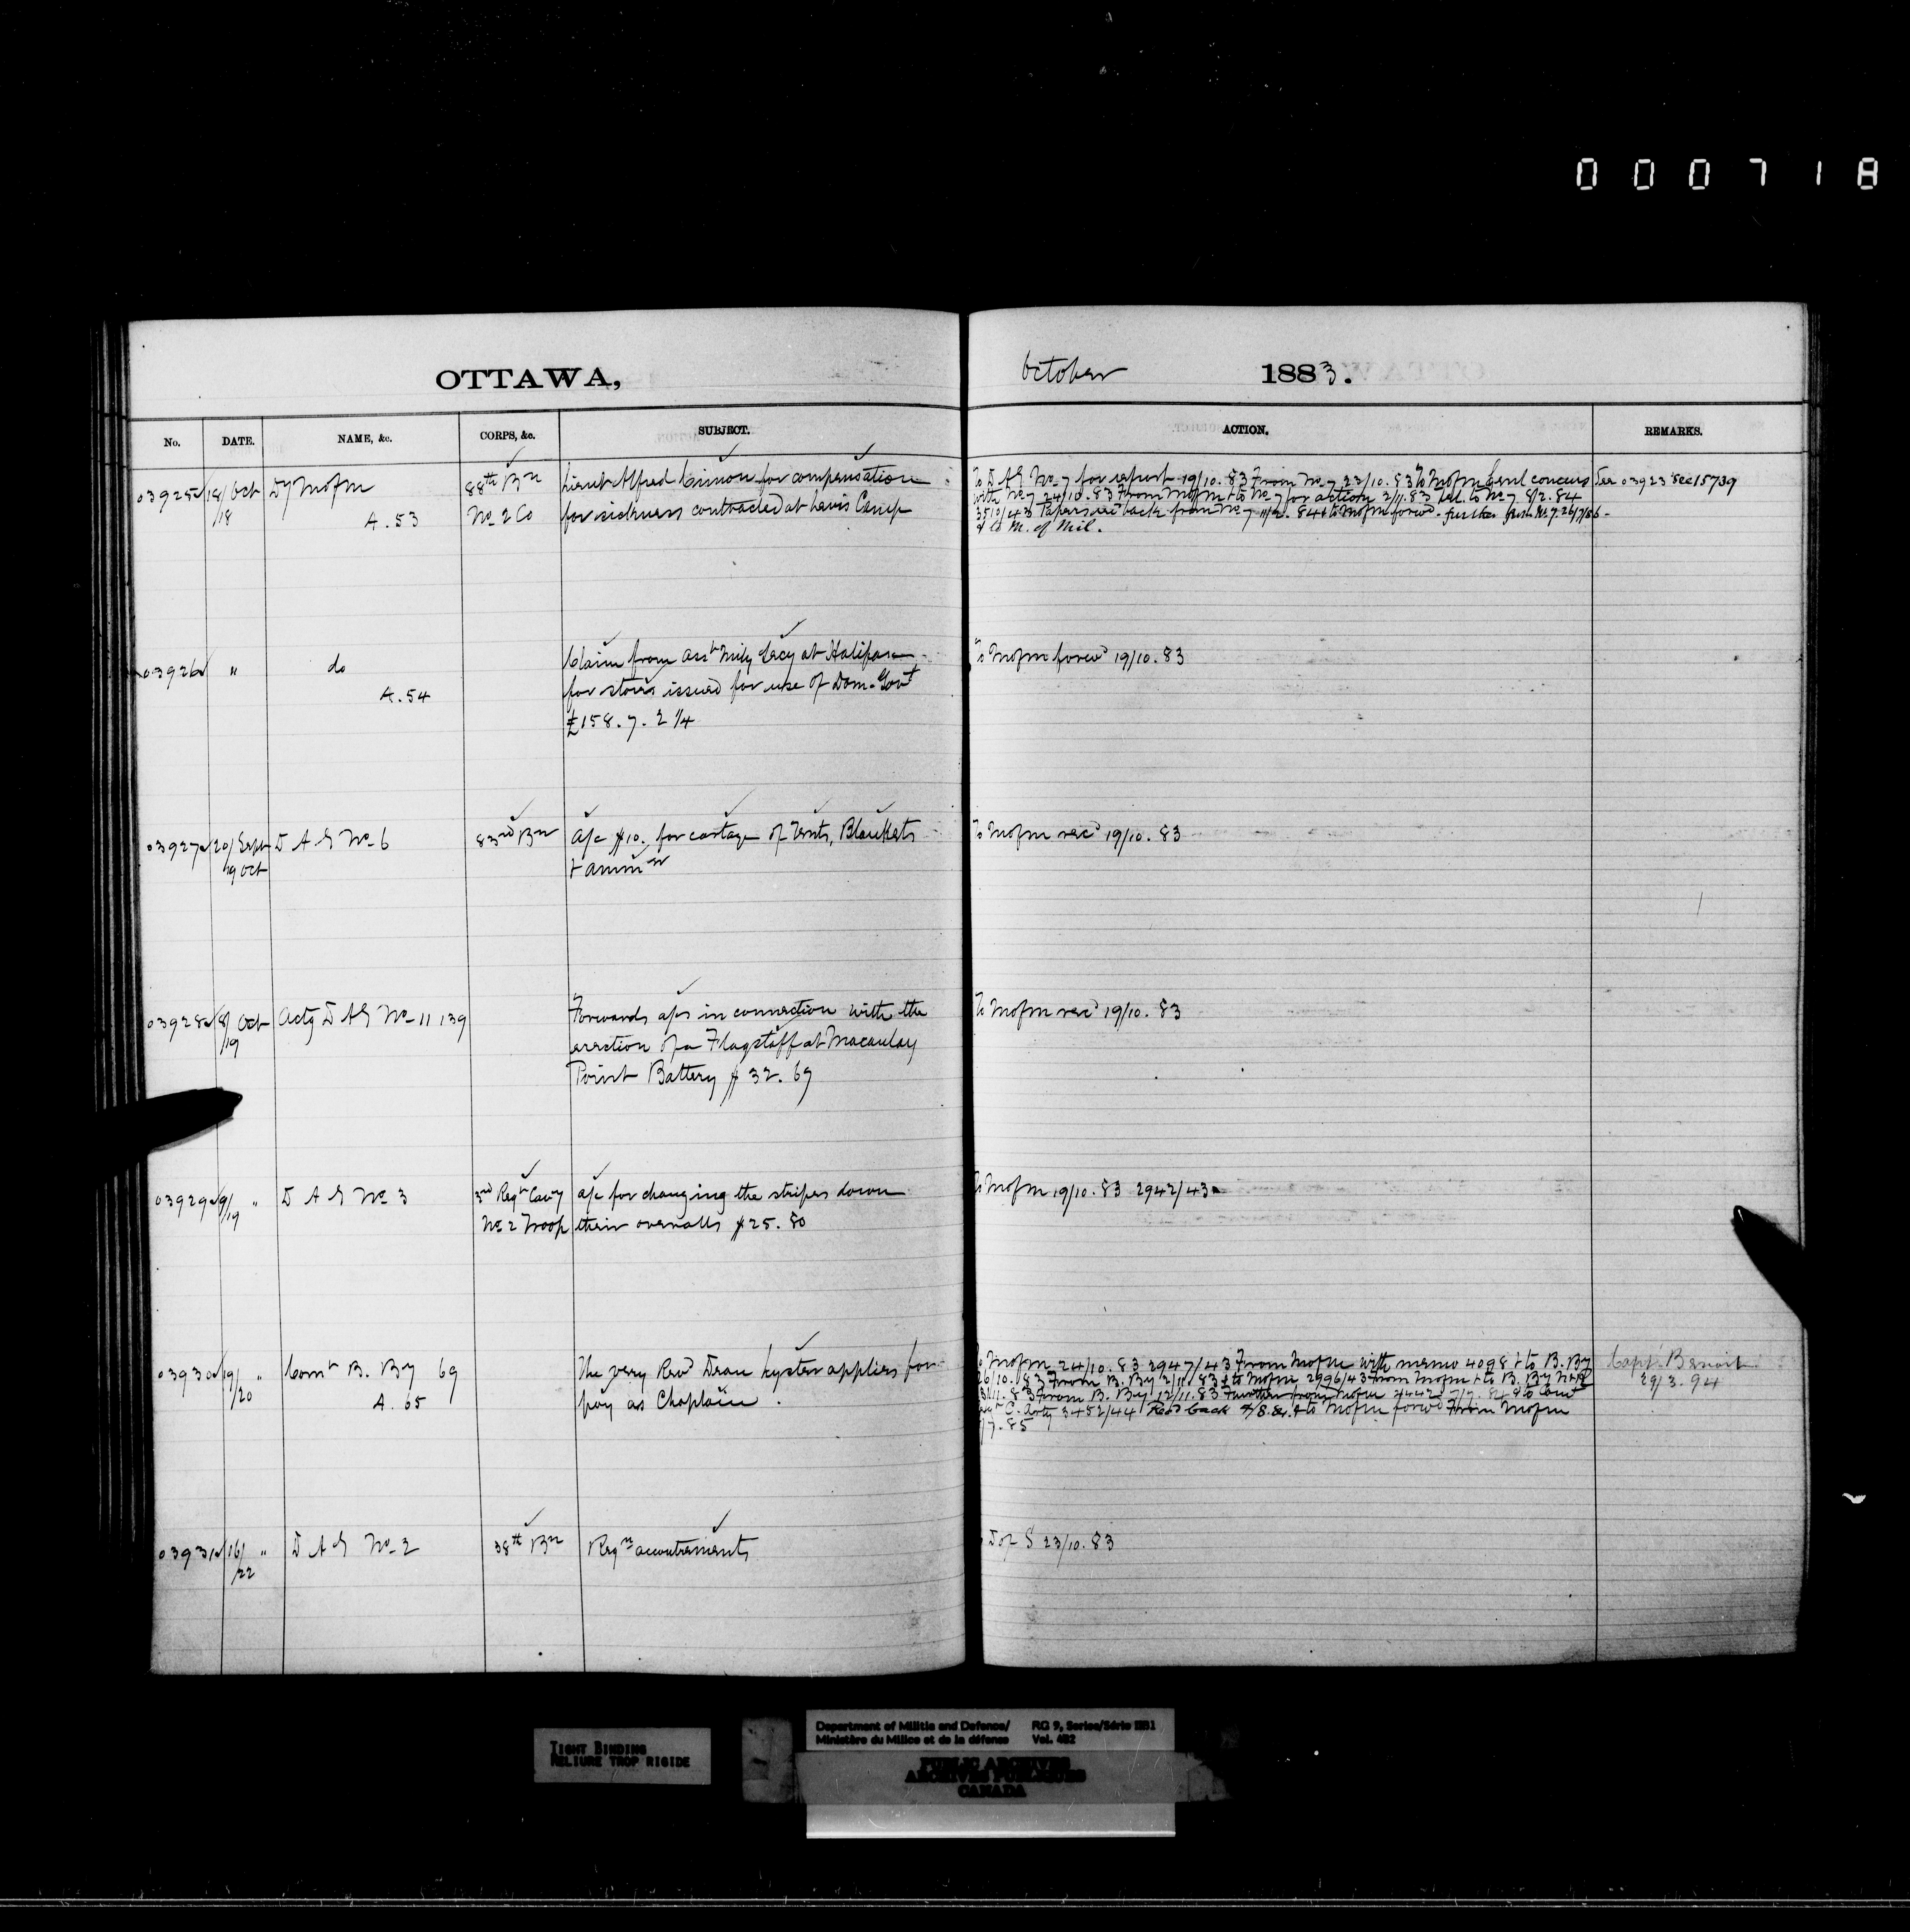 0 0 0 7 1 8
OTTAWA,
October 1883.
No. DATE. NAME, &c. CORPS, &c. SUBJECT. ACTION. REMARKS.
03925 18/ Oct Dy MofM 88th Bn Lieut Alfred Cimon for compensation
/18 A. 53 No 2 Co for sickness contracted at Levis Camp
To D A G No 7 for report 19/10. 83 From No 7 23/10. 83 To MofM Genl concurs See 03923 See 15739
with No 7 24/10. 83 From MofM & to No 7 for action 2/11. 83 to No 7 8/2. 84
3510/43 Papers back from No 7 11/2. 84 & to MofM forwd. further from No 7. 26/7/86
& to M. of Mil.
03926 " do Claim from Asst Mily Secy at Halifax
A. 54 for stores issued for use of Dom. Govt
£158. 7. 2 1/4
To MofM forwd 19/10. 83
03927 20/ Sept D A G No 6 83rd Bn a/c $10. for cartage of Tents, Blankets
/19 Oct & ammn
To MofM recd 19/10. 83
03928 8/ Oct Actg D A G No 11 139 Forwards a/cs in connection with the
/19 erection of a Flagstaff at Macaulay
Point Battery $ 32. 69
To MofM recd 19/10. 83
03929 9/ " D A G No 3 3rd Regt Cavy a/c for changing the stripes down
/19 No 2 Troop their overalls $25. 80
To MofM 19/10. 83 2942/43
03930 19/ " Comt B. By 69 The very Revd Dean Lyster applies for
/20 A. 65 pay as Chaplain.
To MofM 24/10. 83 2947/43 From MofM with memo 4098 & to B. By Capt. Benoit
26/10. 83 From B. By 2/11. 83 & to MofM 2996/43 From MofM & to B. By 29/3. 94
11. 83 From B. By 12/11. 83 Further from MofM 7/7. 84 & to Comt
C. Arty 3452/44 Recd back 8. 84. & to MofM forwd From MofM
/7. 85
03931 16/ " D A G No 2 38th Bn Reqn accoutrements
/22
D of S 23/10. 83
TIGHT BINDING
RELIURE TROP RIGIDE
Department of Militia and Defence/ RG 9, Series/Série IIB1
Ministère du Milice et de la défense Vol. 452
PUBLIC ARCHIVES
ARCHIVES PUBLIQUES
CANADA